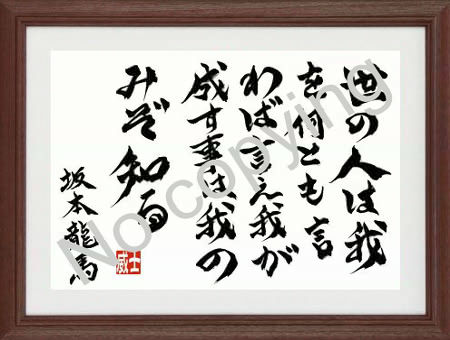 世の人は我
を何とも言
わば言え我が
成す事は我の
みぞ知る
坂本龍馬
威士
No copying